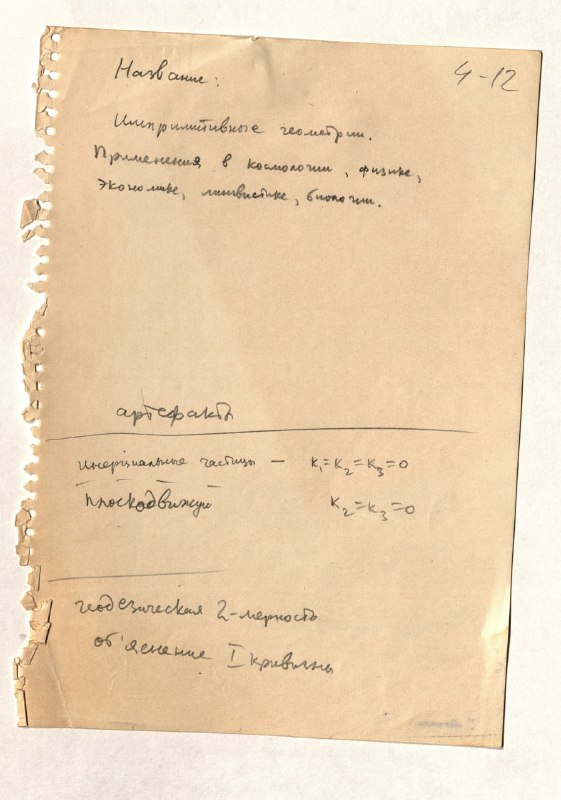 4-12
Название:
Импримитивные геометрии.
Применения в космологии, физике,
экономике, лингвистике, биологии.
артефакты
инерциальные частицы — K₁=K₂=K₃=0
плоскодвижущ K₂=K₃=0
геодезическая 2-мерность
об'яснение I кривизны